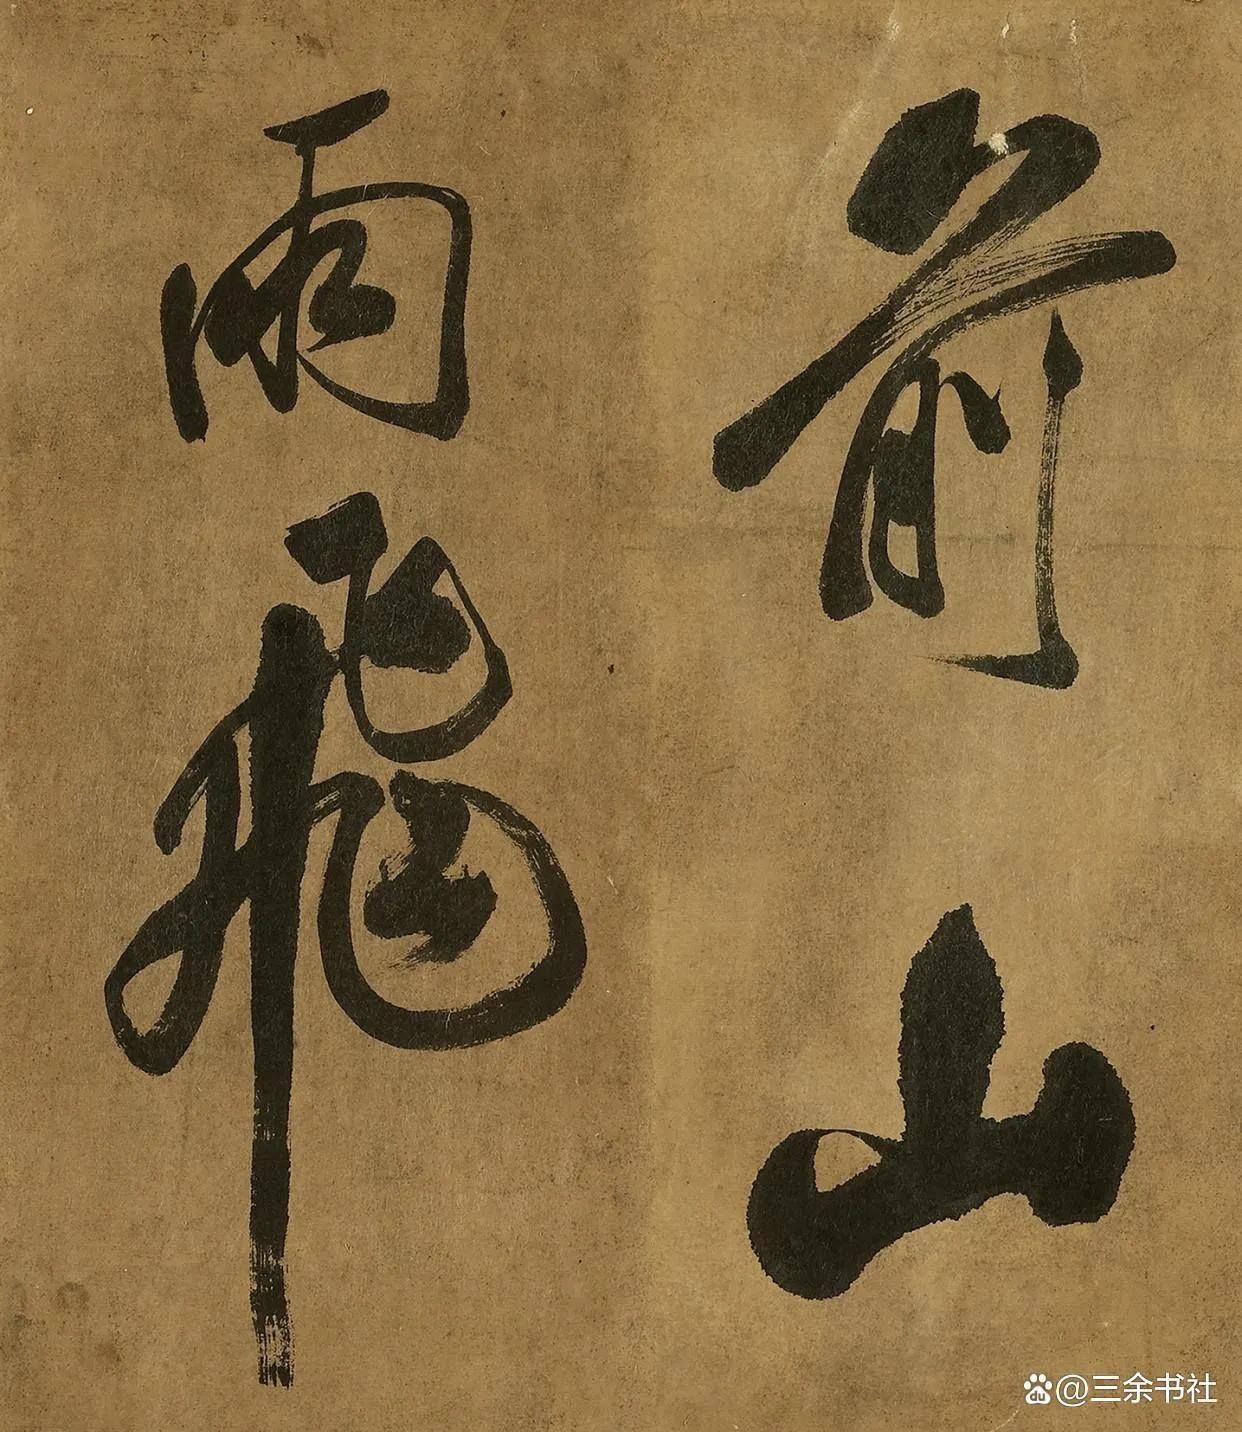 前山
雨飛
du@三余书社